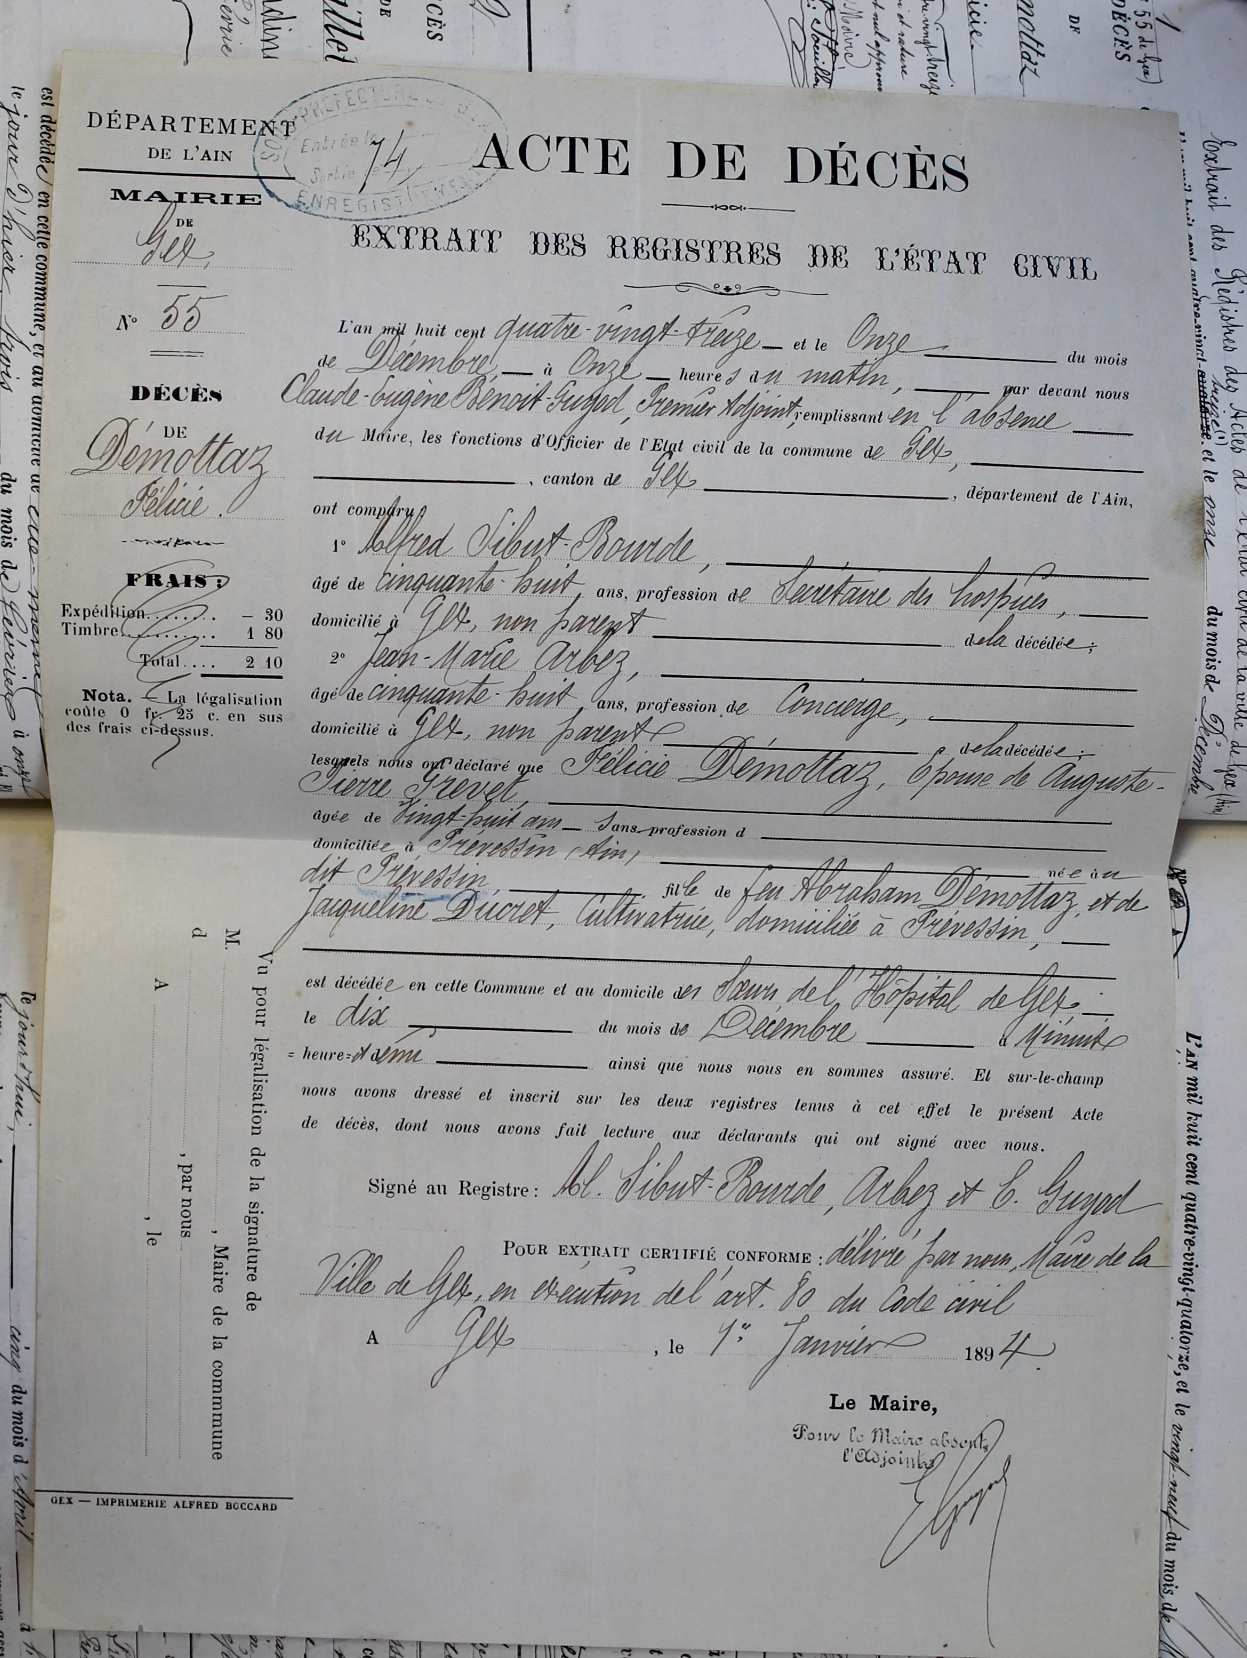 DÉPARTEMENT
DE L'AIN
MAIRIE
DE
Gex,
N° 55
DÉCÈS
DE
Démottaz
Félicie.
FRAIS:
Expédition........ - 30
Timbre............ 1 80
Total.... 2 10
Nota. — La légalisation
coûte 0 fr. 25 c. en sus
des frais ci-dessus.
SOUS-PRÉFECTURE DE GEX
Entrée le
74
Sortie
ENREGISTREMENT
ACTE DE DÉCÈS
EXTRAIT DES REGISTRES DE L'ÉTAT CIVIL
L'an mil huit cent quatre-vingt-treize — et le Onze du mois
de Décembre, — à Onze — heures du matin, par devant nous
Claude-Eugène Benoit-Guyod, Premier Adjoint, remplissant en l'absence
du Maire, les fonctions d'Officier de l'Etat civil de la commune de Gex,
, canton de Gex, département de l'Ain,
ont comparu
1° Alfred Sibut-Bourde,
âgé de cinquante-huit ans, profession de Secrétaire des hospices,
domicilié à Gex, non parent de la décédée;
2° Jean-Marie Arbez,
âgé de cinquante-huit ans, profession de Concierge,
domicilié à Gex, non parent de la décédée;
lesquels nous ont déclaré que Félicie Démottaz, Epouse de Auguste-
Pierre Grevet,
âgée de vingt-huit ans — Sans profession d
domiciliée à Prévessin (Ain) née au
dit Prévessin, fille de feu Abraham Démottaz, et de
Jacqueline Ducret, Cultivatrice, domiciliée à Prévessin,
est décédée en cette Commune et au domicile des Sœurs de l'Hôpital de Gex
le dix du mois de Décembre à Minuit
= heure = et demi ainsi que nous nous en sommes assuré. Et sur-le-champ
nous avons dressé et inscrit sur les deux registres tenus à cet effet le présent Acte
de décès, dont nous avons fait lecture aux déclarants qui ont signé avec nous.
Signé au Registre: Al. Sibut-Bourde, Arbez et E. Guyod
POUR EXTRAIT CERTIFIÉ CONFORME: délivré par nous, Maire de la
Ville de Gex, en exécution de l'art. 80 du Code civil
A Gex, le 1er Janvier 1894.
Le Maire,
Pour le Maire absent,
l'Adjoint
Vu pour légalisation de la signature de
M. , Maire de la commune
d , par nous
A , le
GEX — IMPRIMERIE ALFRED BOCCARD
est décédée en cette commune, et au domicile de
le jour d'hier trois du mois de Février à onze
le jour d'hui, cinq du mois d'Avril
Extrait des Registres des Actes de l'Etat civil de la ville de Gex (Ain)
et le onze du mois de Décembre
L'AN mil huit cent quatre-vingt-quatorze, et le vingt-neuf du mois de
DÉCÈS
DE
DÉCÈS
DE